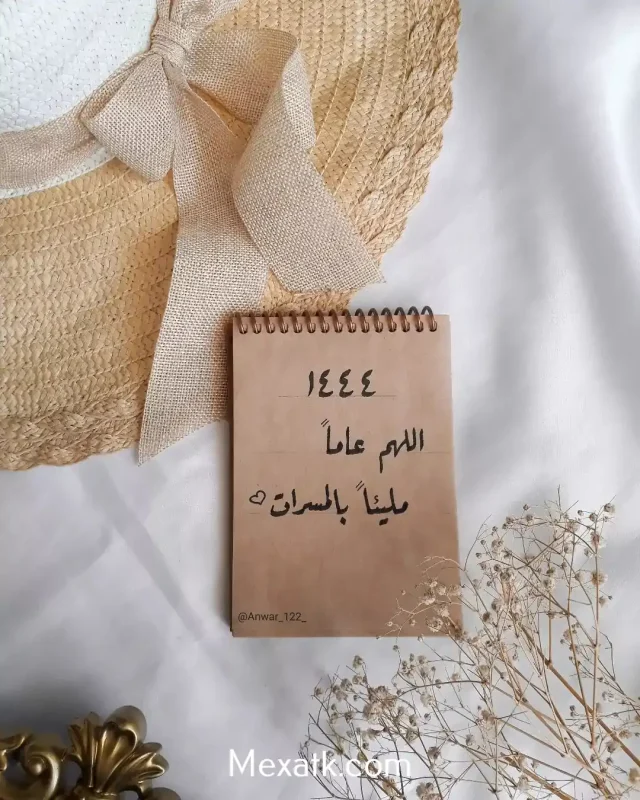 ١٤٤٤
اللهم عاماً
مليئاً بالمسرات ♡
@Anwar_122_
Mexatk.com